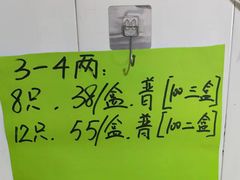 3-4两:
8只. 38/盒. 普[100三盒]
12只. 55/盒. 普[100二盒]